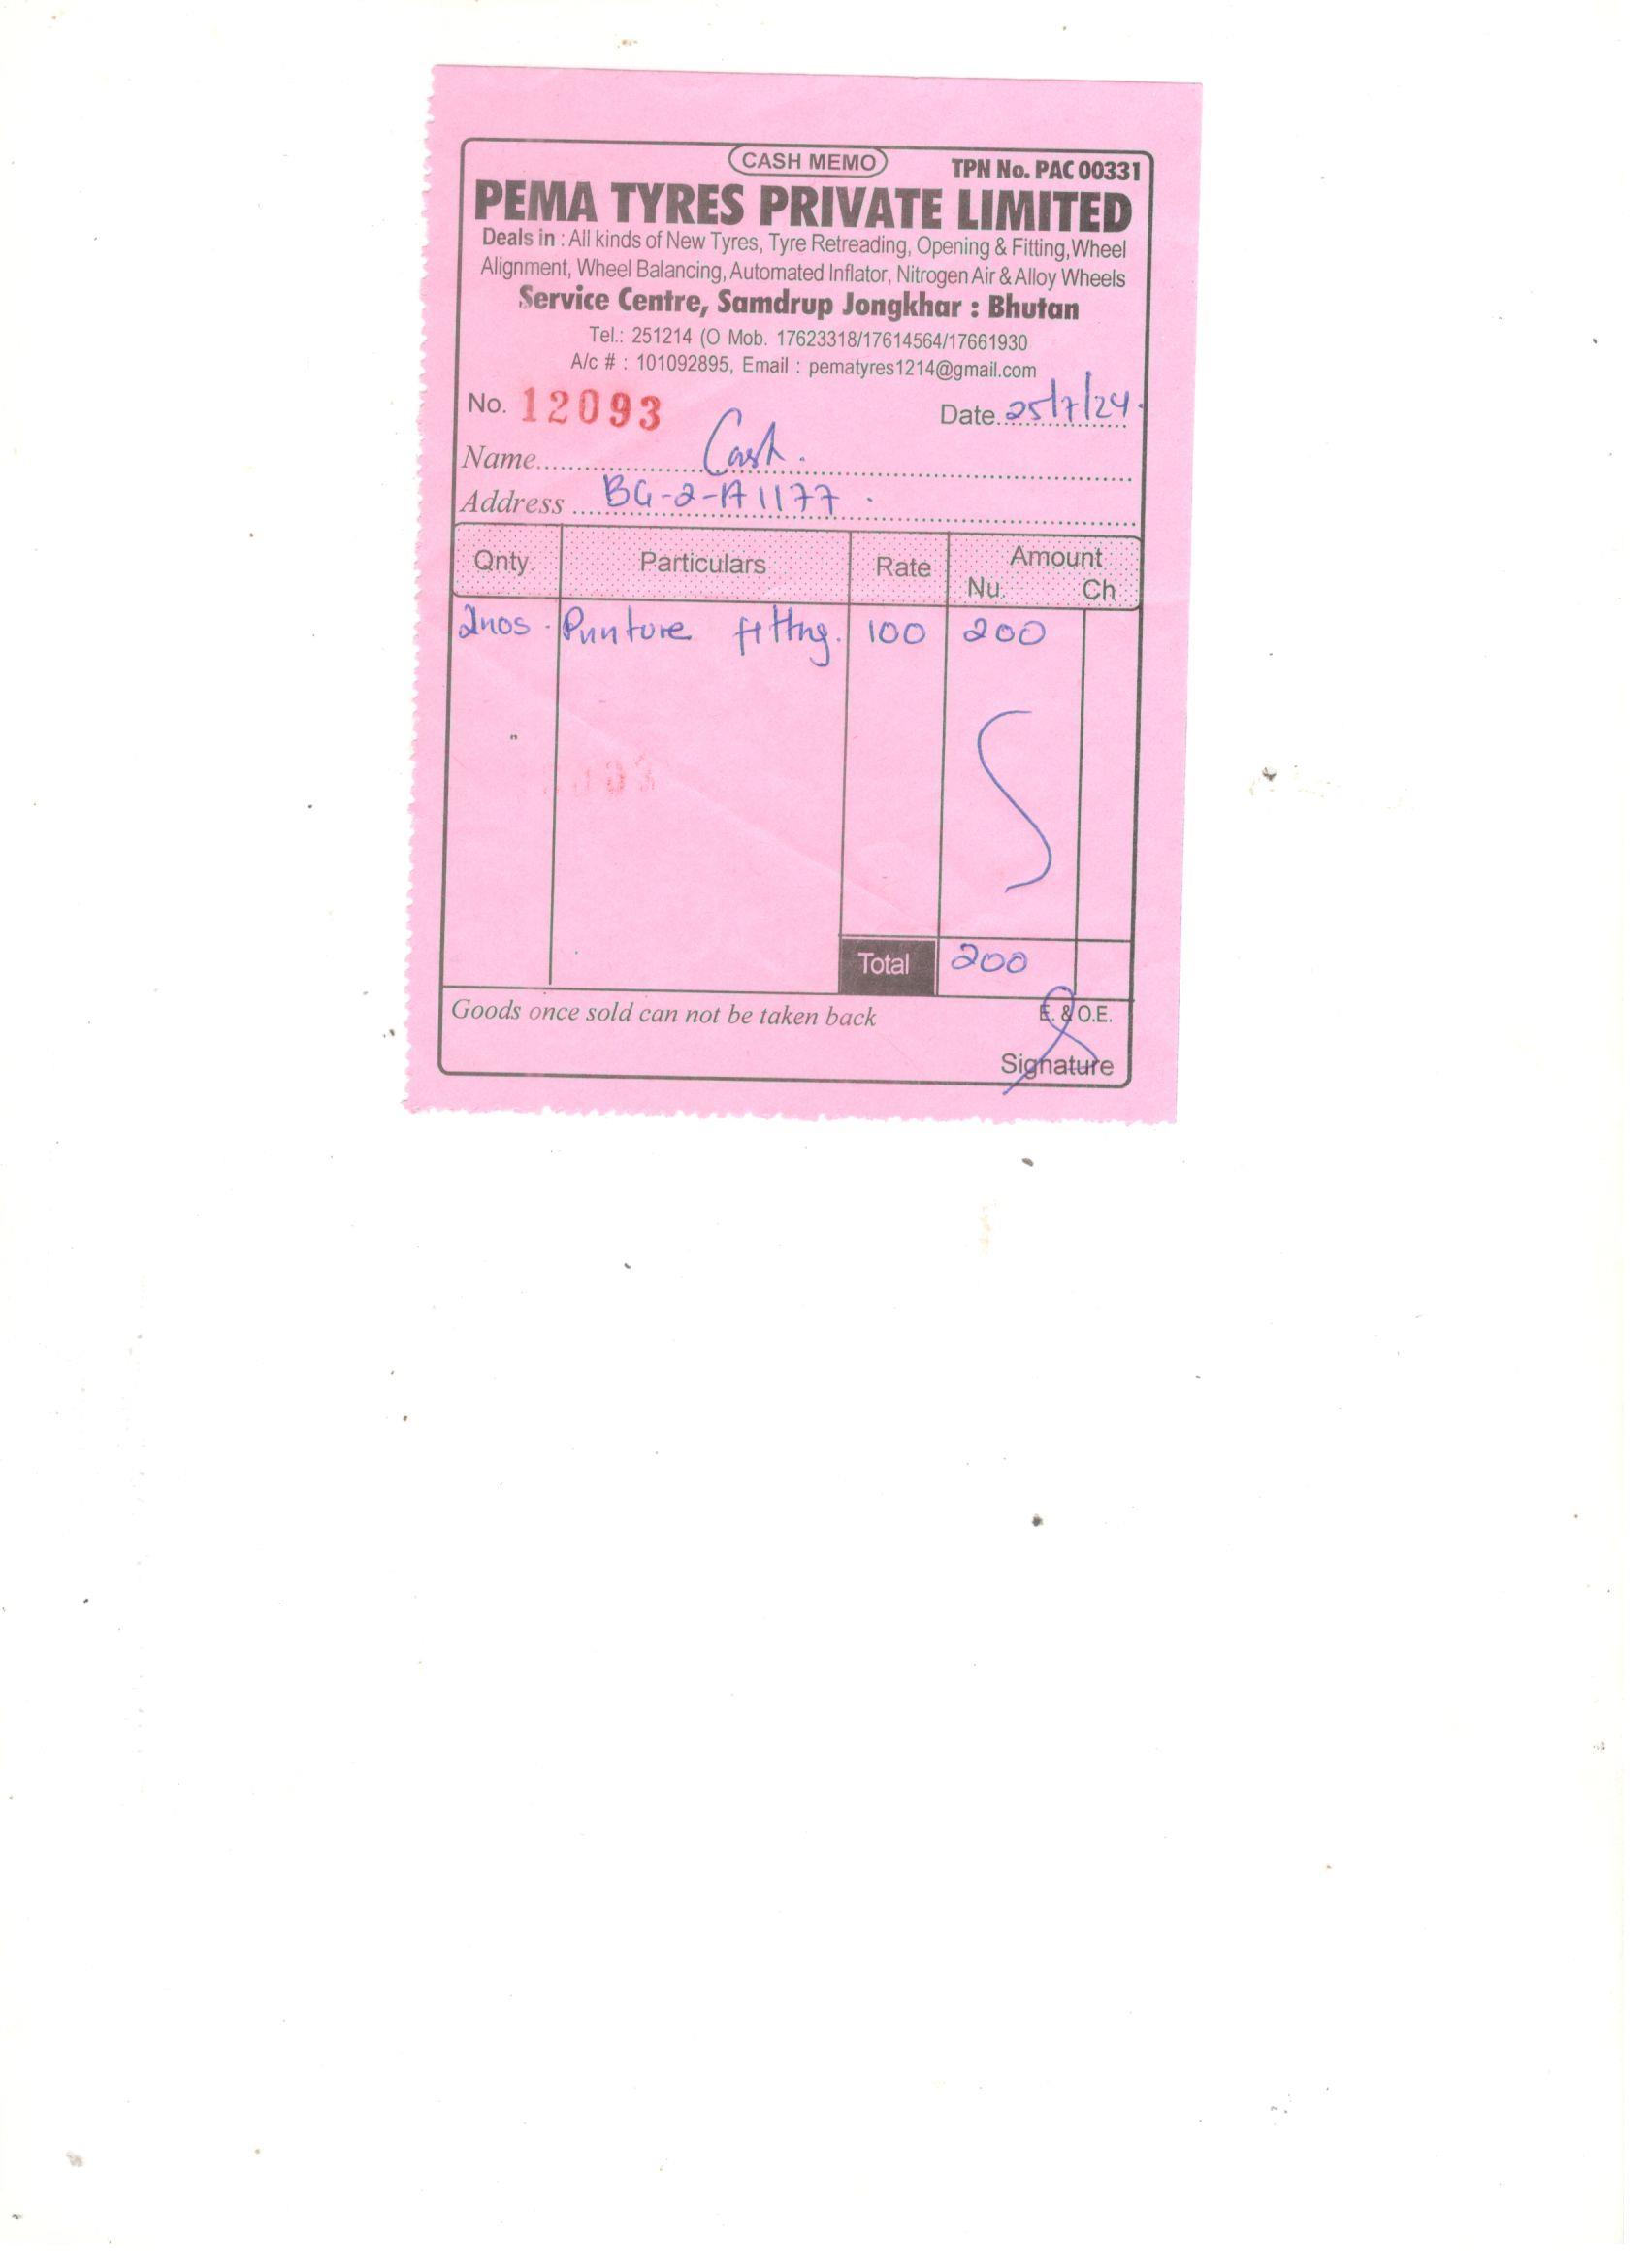 CASH MEMO
TPN No. PAC 00331
PEMA TYRES PRIVATE LIMITED
Deals in : All kinds of New Tyres, Tyre Retreading, Opening & Fitting, Wheel
Alignment, Wheel Balancing, Automated Inflator, Nitrogen Air & Alloy Wheels
Service Centre, Samdrup Jongkhar : Bhutan
Tel.: 251214 (O Mob. 17623318/17614564/17661930
A/c # : 101092895, Email : pematyres1214@gmail.com
No. 12093 Date 25/7/24.
Name Cash.
Address BG-2-A1177.
Qnty. Particulars Rate Amount
Nu. Ch
2nos. Punture fitting. 100 200
Total 200
Goods once sold can not be taken back E. & O.E.
Signature